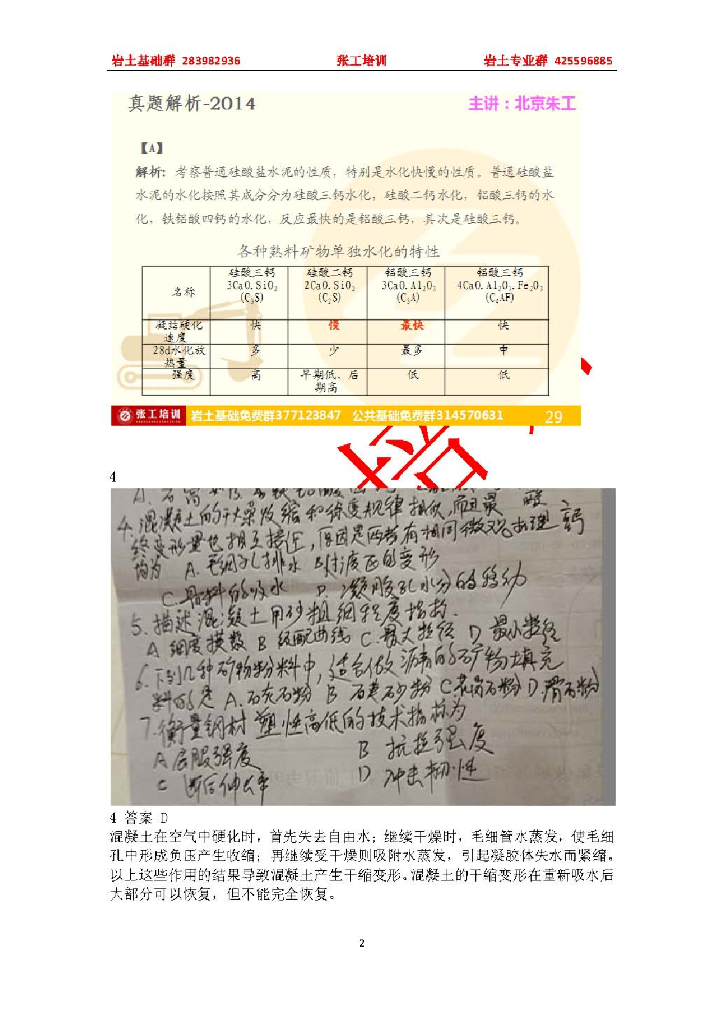 岩土基础群 283982936 张工培训 岩土专业群 425596885
真题解析-2014 主讲：北京朱工
【A】
解析：考察普通硅酸盐水泥的性质，特别是水化快慢的性质。普通硅酸盐
水泥的水化按照其成分分为硅酸三钙水化，硅酸二钙水化，铝酸三钙的水
化，铁铝酸四钙的水化，反应最快的是铝酸三钙，其次是硅酸三钙。
各种熟料矿物单独水化的特性
名称 硅酸三钙 3CaO.SiO₂ (C₃S) 硅酸二钙 2CaO.SiO₂ (C₂S) 铝酸三钙 3CaO.Al₂O₃ (C₃A) 铝酸三钙 4CaO.Al₂O₃.Fe₂O₃ (C₄AF)
凝结硬化速度 快 慢 最快 快
28d水化放热量 多 少 最多 中
强度 高 早期低、后期高 低 低
张工培训 岩土基础免费群377123847 公共基础免费群314570631 29
培
4
4.混凝土的干燥收缩和徐变规律相似,而且最
终变形量也相互接近,原因是两者有相同微观机理
均为 A.毛细孔排水 B过渡区的变形
C.骨料的吸水 D.凝胶孔水分的移动
5.描述混凝土用砂粗细程度指标.
A 细度模数 B 级配曲线 C.最大粒径 D 最小粒径
6.下列几种矿物粉料中,适合做沥青的矿物填充
料的是 A.石灰石粉 B 石英砂粉 C花岗石粉 D.滑石粉
7.衡量钢材塑性高低的技术指标为
A屈服强度 B 抗拉强度
C 断后伸长率 D 冲击韧性
4 答案 D
混凝土在空气中硬化时，首先失去自由水；继续干燥时，毛细管水蒸发，使毛细
孔中形成负压产生收缩；再继续受干燥则吸附水蒸发，引起凝胶体失水而紧缩。
以上这些作用的结果导致混凝土产生干缩变形。混凝土的干缩变形在重新吸水后
大部分可以恢复，但不能完全恢复。
2